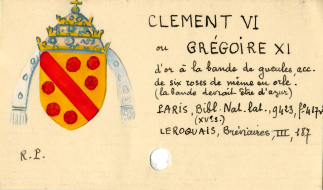 CLEMENT VI
ou GRÉGOIRE XI
d'or à la bande de gueules, acc.
de six roses de même en orle.
(la bande devrait être d'azur)
PARIS, Bibl. Nat. lat., 9423, fº 417v
(XVes.)
LEROQUAIS, Bréviaires, III, 187
R.P.